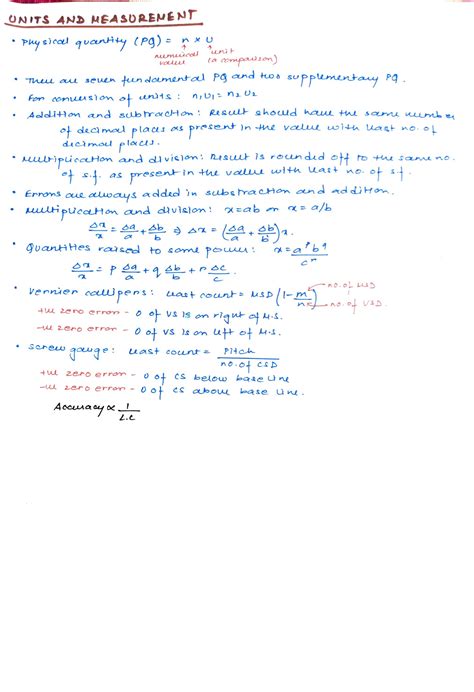 UNITS AND MEASUREMENT
• Physical quantity (PQ) = n × U
numerical value
unit (a comparison)
• There are seven fundamental PQ and two supplementary PQ.
• For conversion of units : n₁U₁ = n₂U₂
• Addition and subtraction : Result should have the same number
of decimal places as present in the value with least no. of
decimal places.
• Multiplication and division : Result is rounded off to the same no.
of s.f. as present in the value with least no. of s.f.
• Errors are always added in substraction and addition.
• Multiplication and division : x = ab or x = a/b
Δx/x = Δa/a + Δb/b ⇒ Δx = (Δa/a + Δb/b)x.
• Quantities raised to some power : x = aᵖb^q/cʳ
Δx/x = p Δa/a + q Δb/b + r Δc/c.
• Vernier callipers : least count = MSD (1 - m/n)
no. of MSD
no. of VSD
+ve zero error - 0 of VS is on right of M.S.
-ve zero error - 0 of VS is on left of M.S.
• Screw gauge : least count = Pitch/no. of CSD
+ve zero error - 0 of CS below base line
-ve zero error - 0 of CS above base line.
Accuracy ∝ 1/L.C